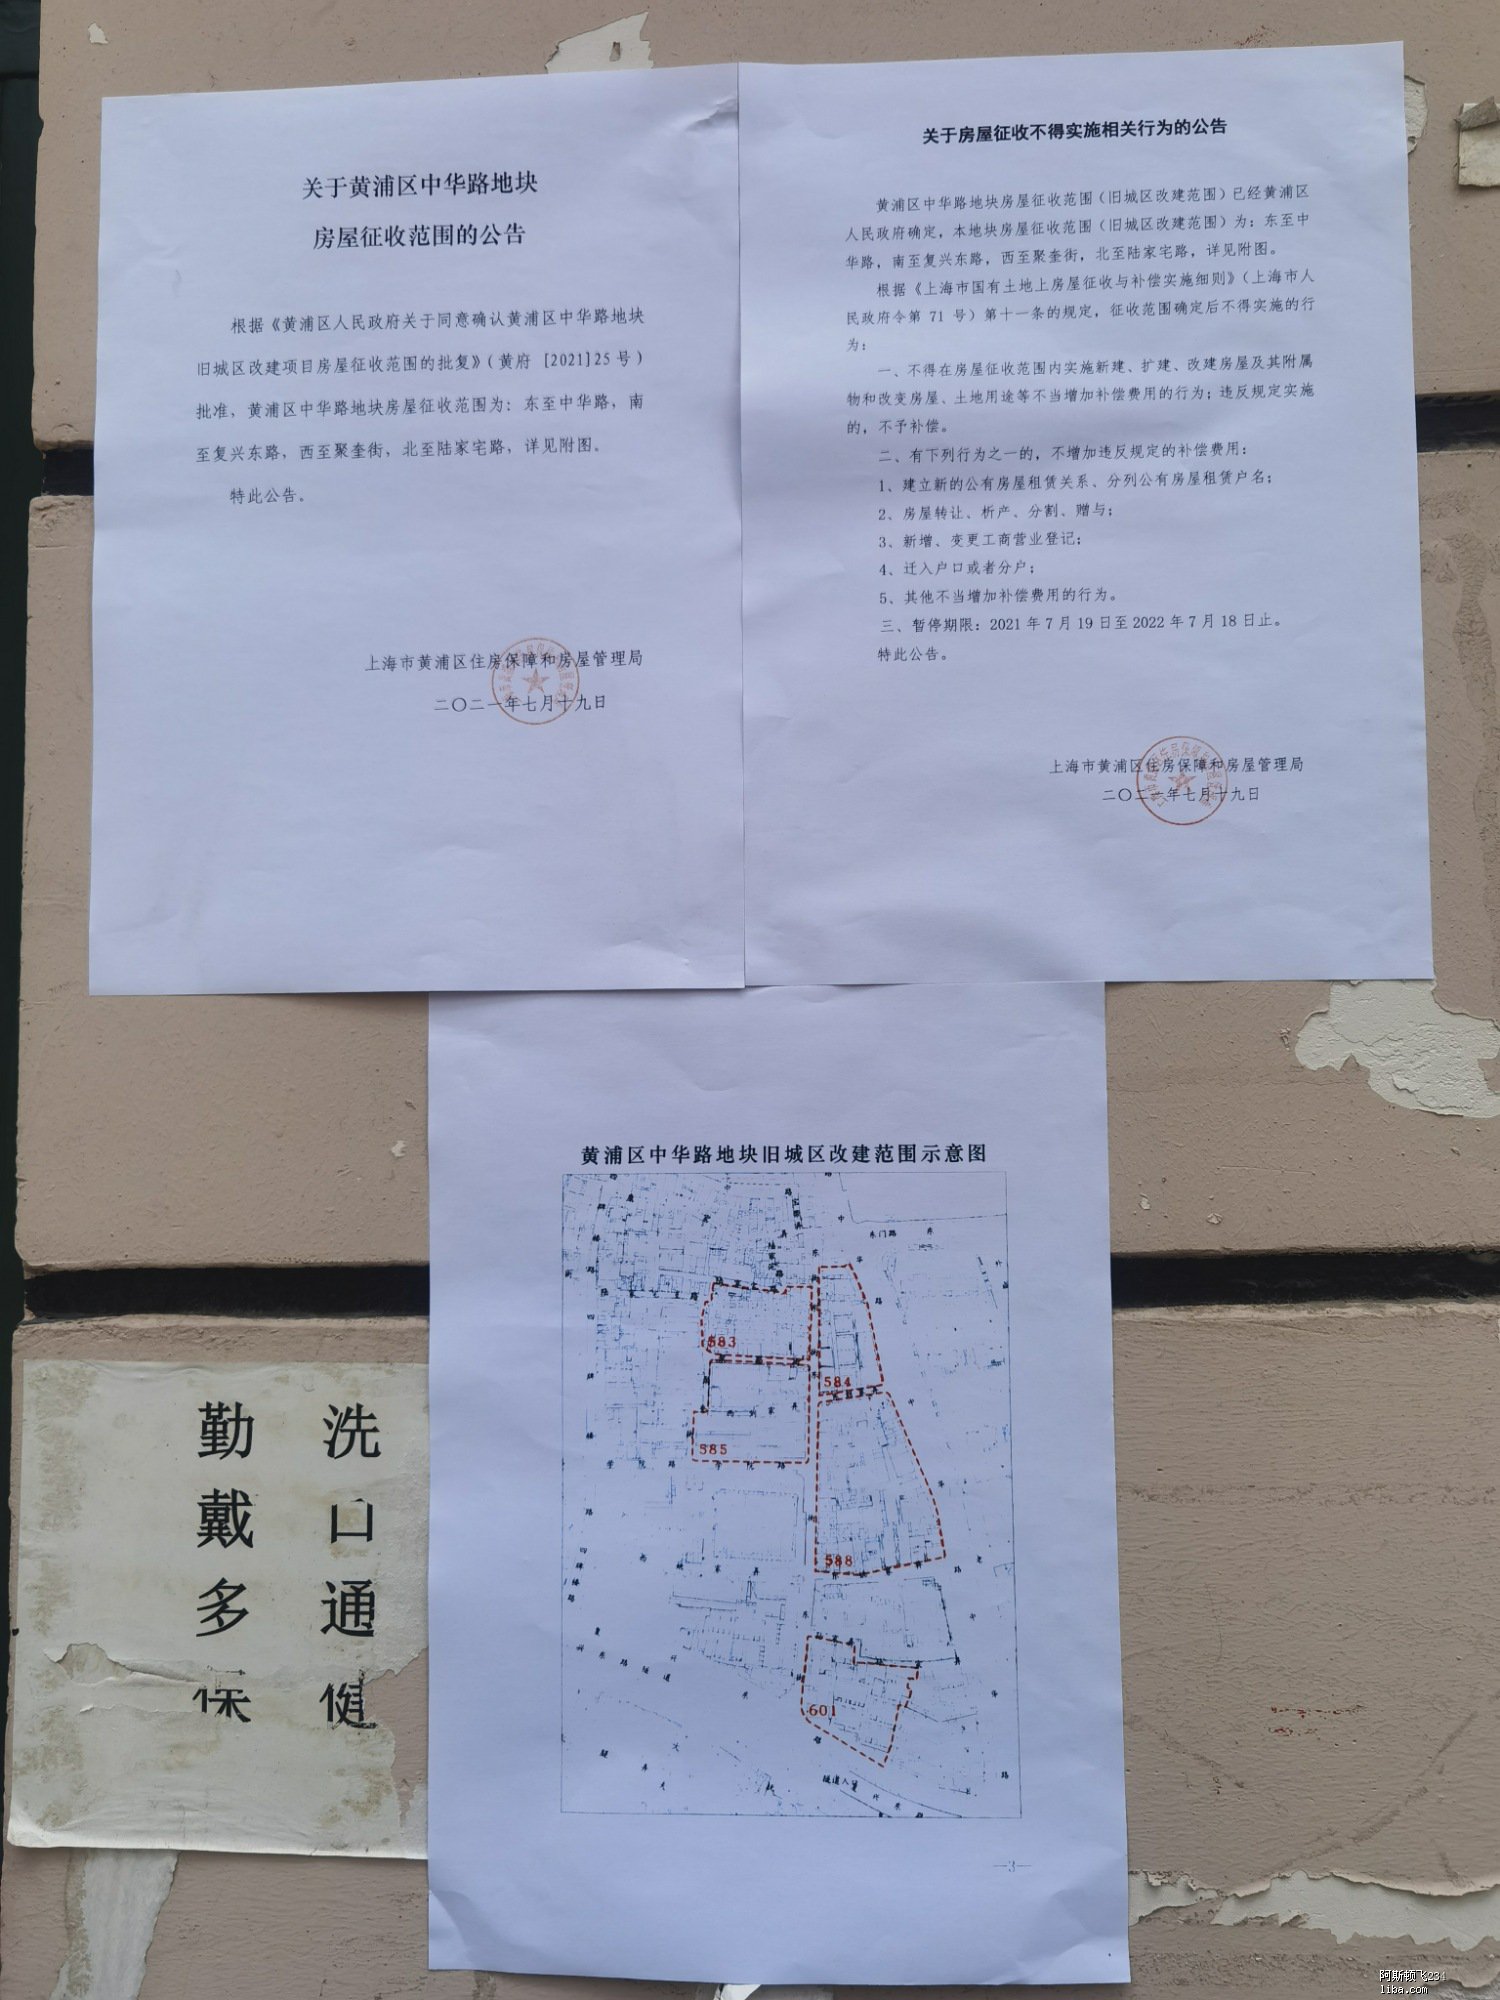 关于黄浦区中华路地块
房屋征收范围的公告
根据《黄浦区人民政府关于同意确认黄浦区中华路地块
旧城区改建项目房屋征收范围的批复》(黄府 [2021]25号)
批准，黄浦区中华路地块房屋征收范围为：东至中华路，南
至复兴东路，西至聚奎街，北至陆家宅路，详见附图。
特此公告。
上海市黄浦区住房保障和房屋管理局
二〇二一年七月十九日
关于房屋征收不得实施相关行为的公告
黄浦区中华路地块房屋征收范围（旧城区改建范围）已经黄浦区
人民政府确定，本地块房屋征收范围（旧城区改建范围）为：东至中
华路，南至复兴东路，西至聚奎街，北至陆家宅路，详见附图。
根据《上海市国有土地上房屋征收与补偿实施细则》（上海市人
民政府令第 71 号）第十一条的规定，征收范围确定后不得实施的行
为：
一、不得在房屋征收范围内实施新建、扩建、改建房屋及其附属
物和改变房屋、土地用途等不当增加补偿费用的行为；违反规定实施
的，不予补偿。
二、有下列行为之一的，不增加违反规定的补偿费用：
1、建立新的公有房屋租赁关系、分列公有房屋租赁户名；
2、房屋转让、析产、分割、赠与；
3、新增、变更工商营业登记；
4、迁入户口或者分户；
5、其他不当增加补偿费用的行为。
三、暂停期限：2021 年 7 月 19 日至 2022 年 7 月 18 日止。
特此公告。
上海市黄浦区住房保障和房屋管理局
二〇二一年七月十九日
黄浦区中华路地块旧城区改建范围示意图
东门路
583
584
585
学院路
学院路
588
601
隧道入
—3—
勤 洗
戴 口
多 通
保 健
阿斯顿飞234
liba.com